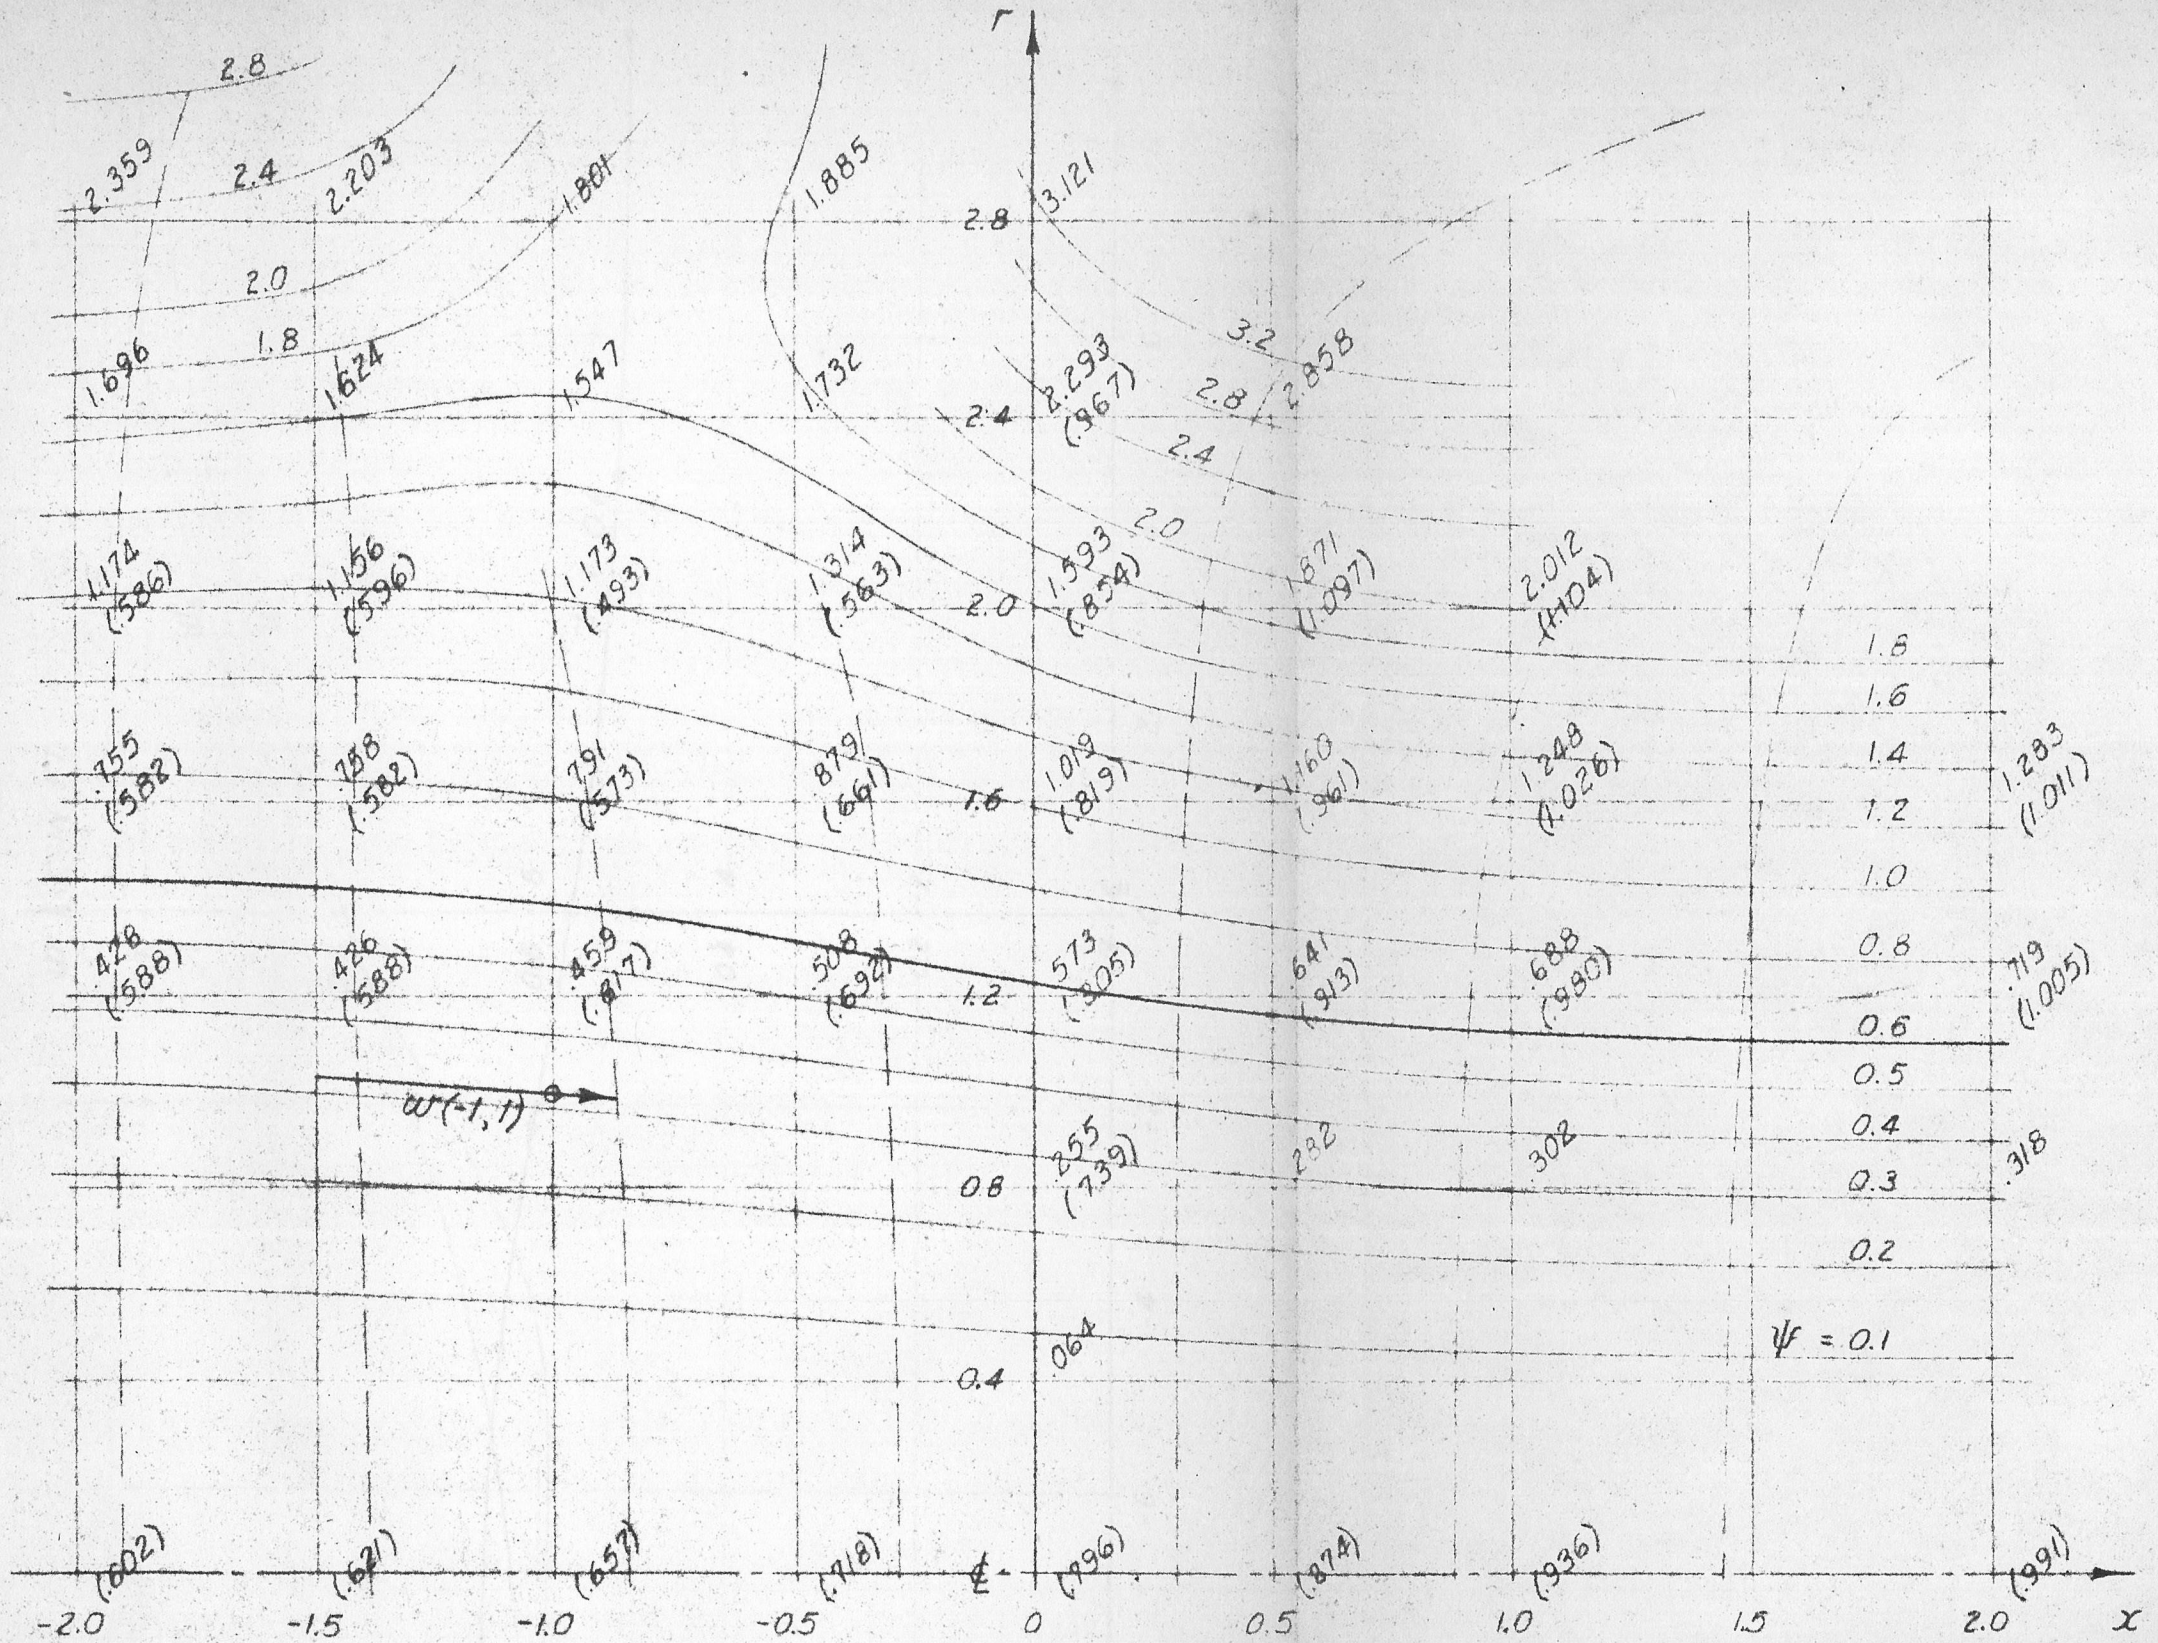 r
2.8
2.359
2.4
2.203
1.801
1.885
3.121
2.8
2.0
1.8
3.2
1.696
1.624
1.547
1.732
2.293
(.967)
2.8
2.858
2.4
2.4
2.0
1.174
(.586)
1.156
(.596)
1.173
(.493)
1.314
(.563)
2.0
1.593
(.854)
1.871
(1.097)
2.012
(1.104)
1.8
1.6
.755
(.582)
.758
(.582)
.791
(.573)
.879
(.661)
1.6
1.019
(.819)
1.160
(.961)
1.248
(1.026)
1.4
1.283
(1.011)
1.2
1.0
.428
(.588)
.426
(.588)
.459
(.617)
.508
(.692)
1.2
.573
(.805)
.641
(.913)
.688
(.980)
0.8
.719
(1.005)
0.6
0.5
w(-1,1)
0.4
.255
(.739)
.282
.302
.318
0.8
0.3
0.2
.064
ψ = 0.1
0.4
(.602)
(.621)
(.657)
(.718)
℄
(.796)
(.874)
(.936)
(.991)
-2.0 -1.5 -1.0 -0.5 0 0.5 1.0 1.5 2.0 x